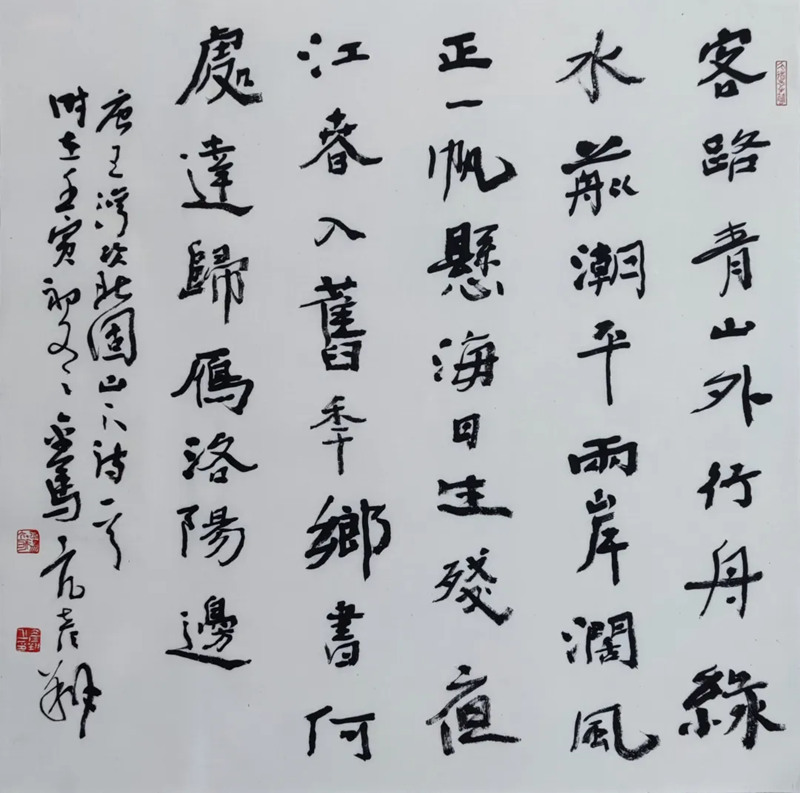 客路青山外行舟綠
水前潮平兩岸濶風
正一帆懸海日生殘夜
江春入舊年鄉書何
處達歸雁洛陽邊
唐王灣次北固山下詩一首
時在壬寅初夏